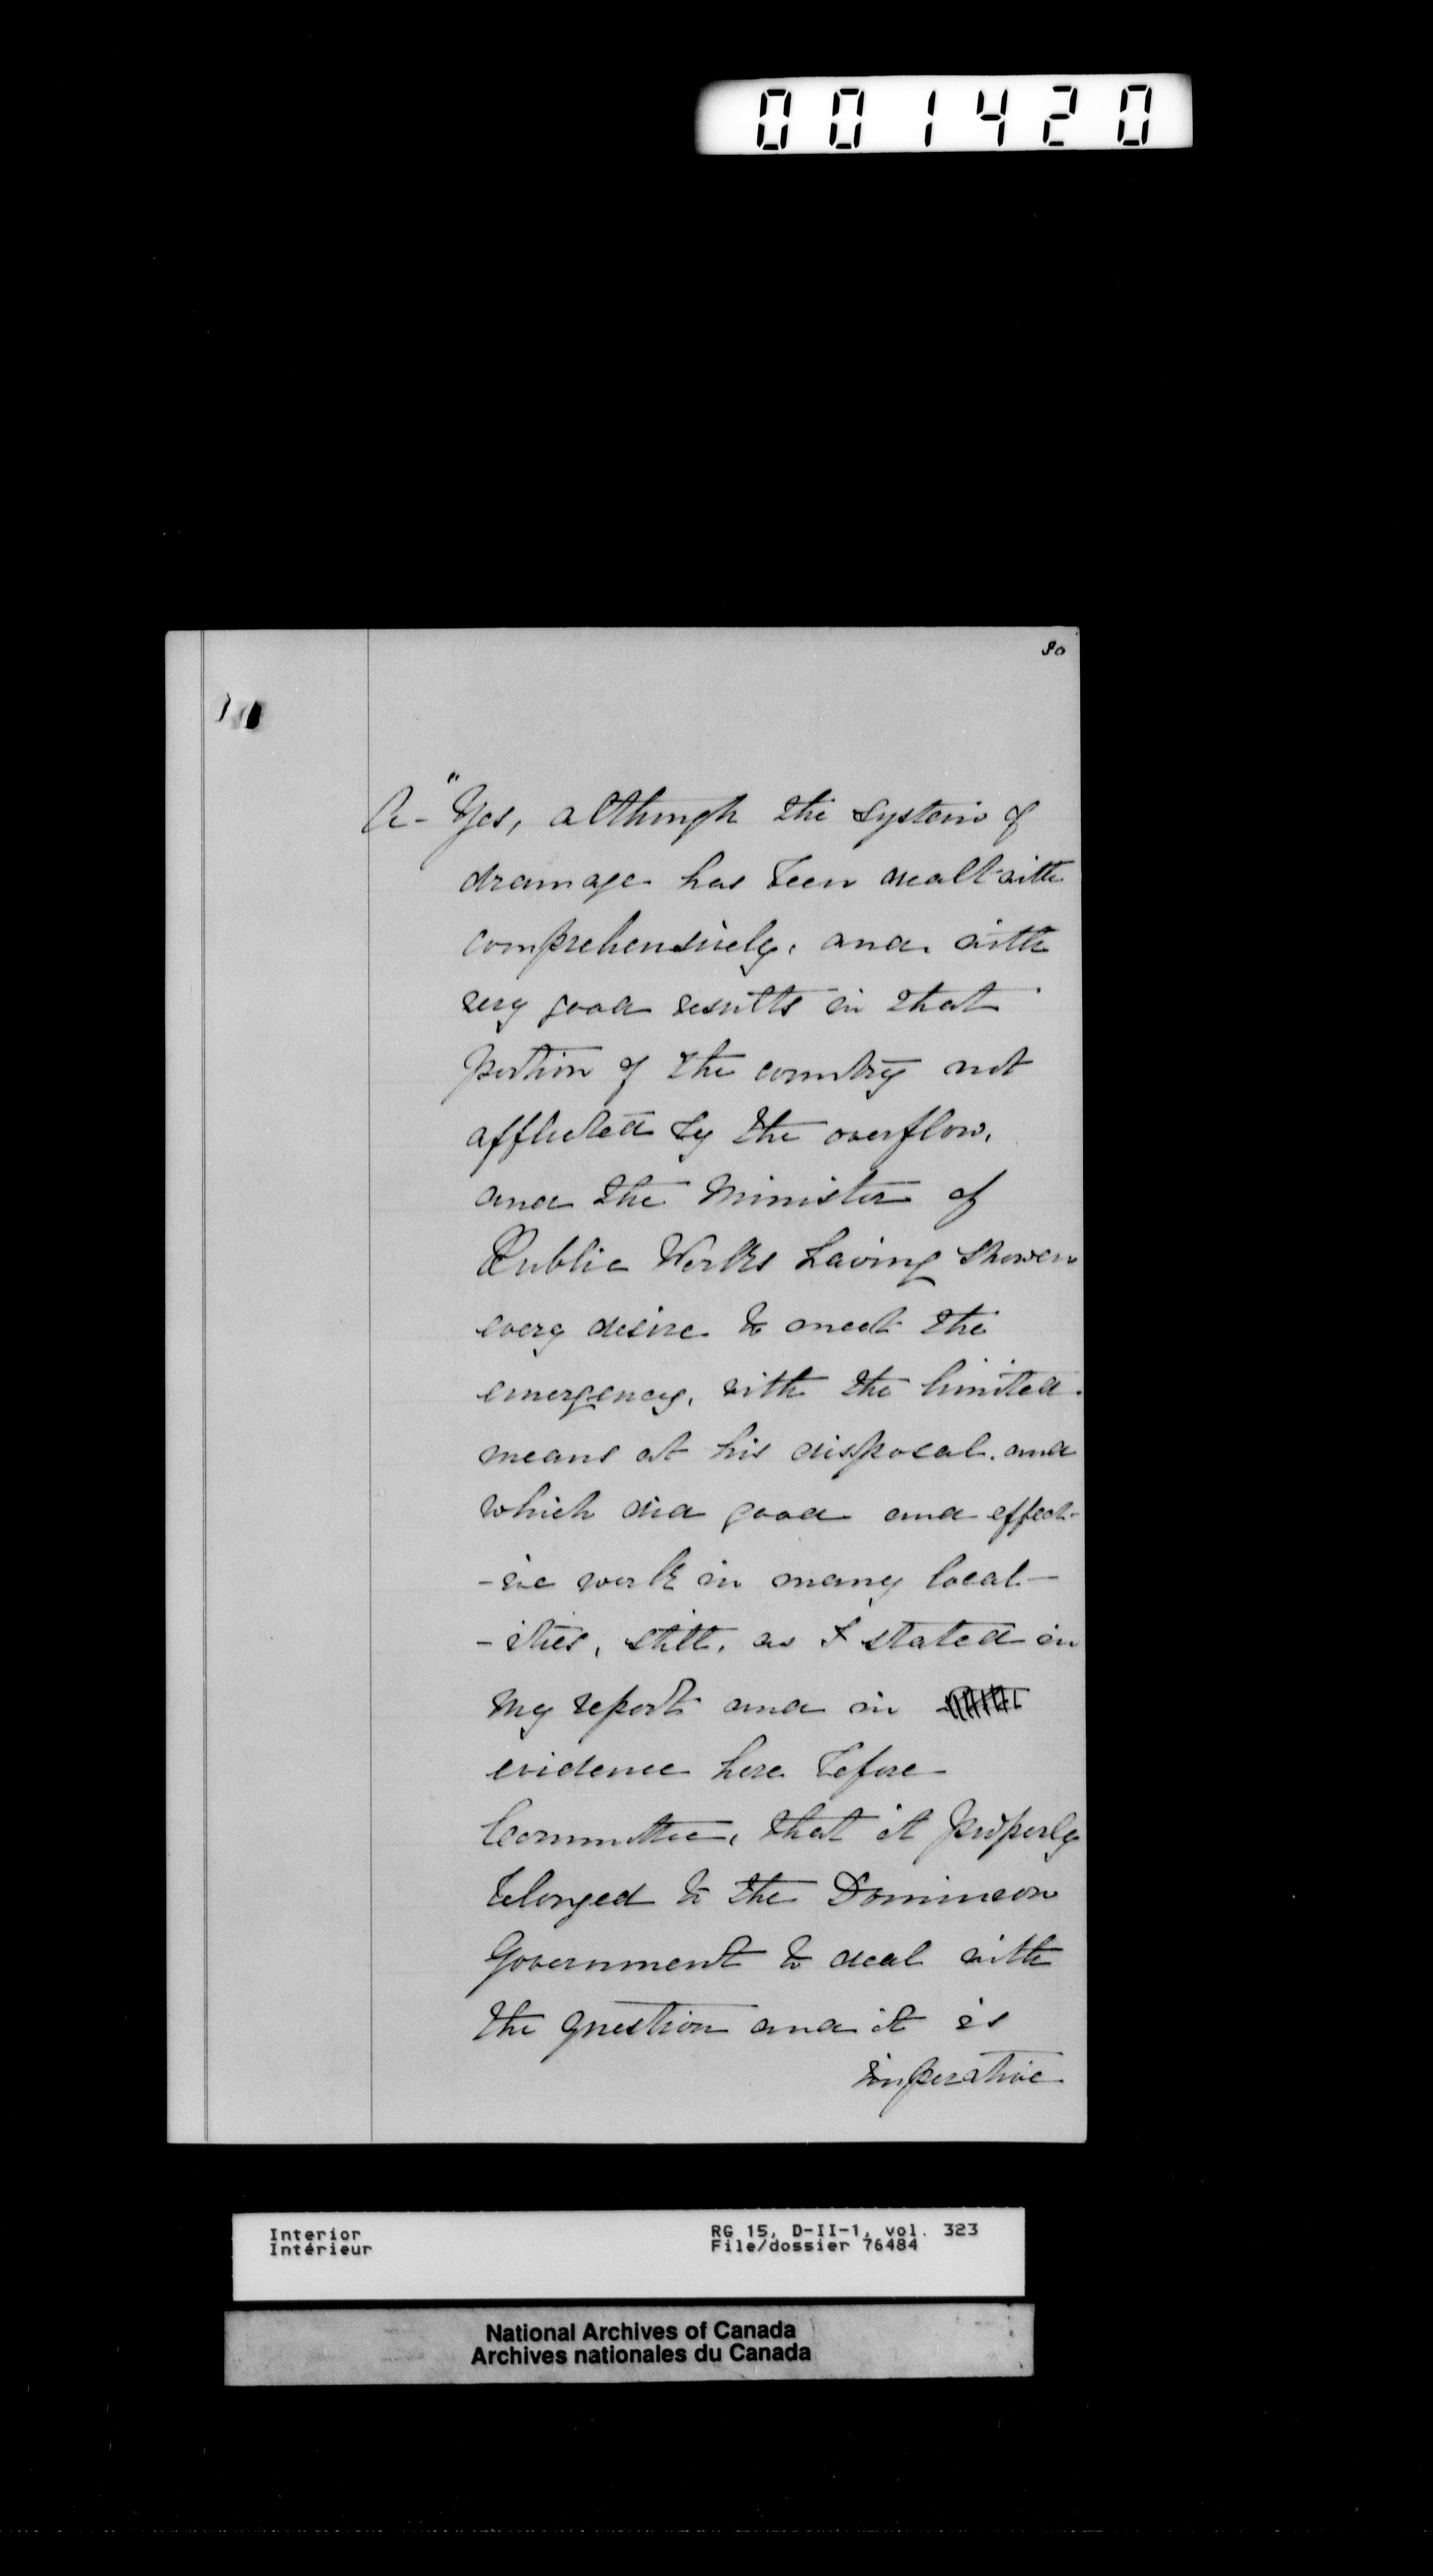 001420
80
A - "Yes, although the system of
drainage has been dealt with
comprehensively, and with
very good results in that
portion of the country not
afflicted by the overflow,
and the Minister of
Public Works having shown
every desire to meet the
emergency, with the limited
means at his disposal, and
which did good and effect-
-ive work in many local-
-ities, still, as I stated in
my report and in
evidence here before
Committee, that it properly
belonged to the Dominion
Government to deal with
the question and it is
imperative
Interior
Intérieur
RG 15, D-II-1, vol. 323
File/dossier 76484
National Archives of Canada
Archives nationales du Canada